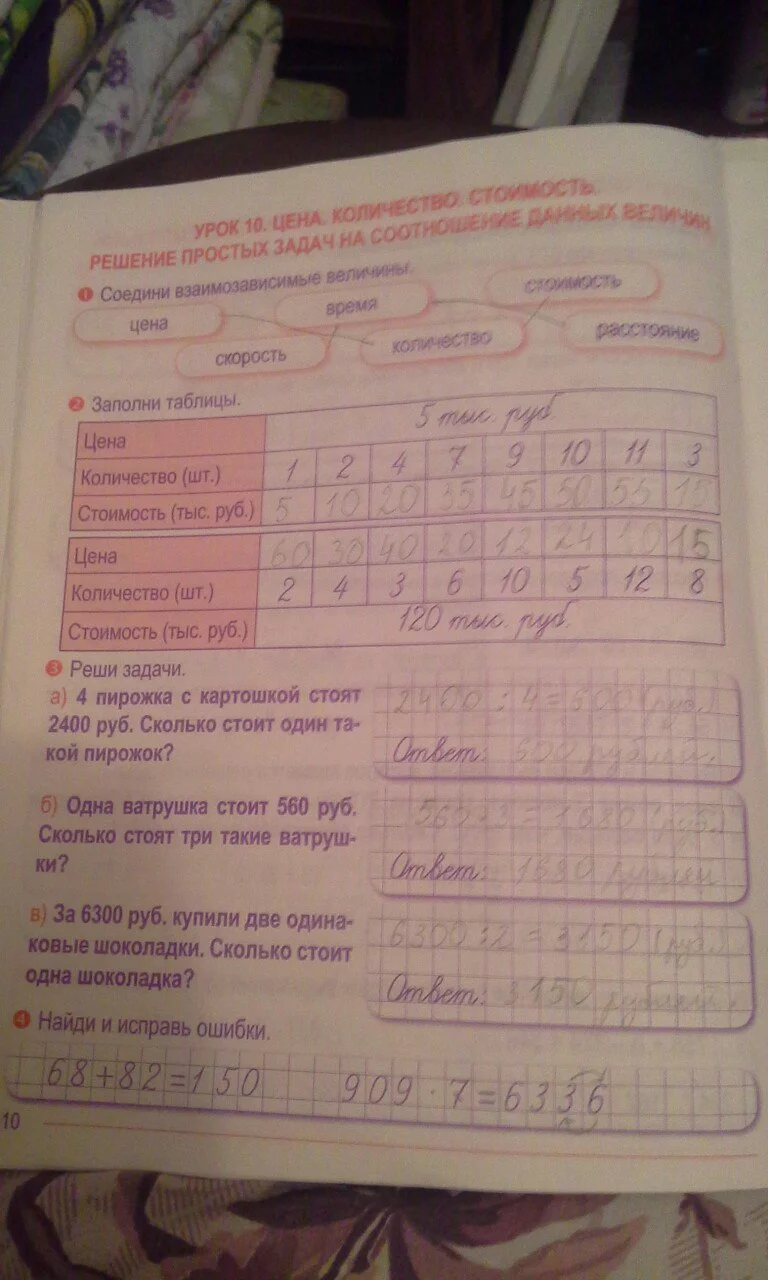 УРОК 10. ЦЕНА. КОЛИЧЕСТВО. СТОИМОСТЬ.
РЕШЕНИЕ ПРОСТЫХ ЗАДАЧ НА СООТНОШЕНИЕ ДАННЫХ ВЕЛИЧИН
1 Соедини взаимозависимые величины.
цена время стоимость
скорость количество расстояние
2 Заполни таблицы.
Цена 5 тыс. руб.
Количество (шт.) 1 2 4 7 9 10 11 3
Стоимость (тыс. руб.) 5 10 20 35 45 50 55 15
Цена 60 30 40 20 12 24 10 15
Количество (шт.) 2 4 3 6 10 5 12 8
Стоимость (тыс. руб.) 120 тыс. руб.
3 Реши задачи.
а) 4 пирожка с картошкой стоят
2400 руб. Сколько стоит один та-
кой пирожок?
2400 : 4 = 600 (рубл)
Ответ: 600 рублей.
б) Одна ватрушка стоит 560 руб.
Сколько стоят три такие ватруш-
ки?
560 · 3 = 1680 (рубл)
Ответ: 1680 рублей
в) За 6300 руб. купили две одина-
ковые шоколадки. Сколько стоит
одна шоколадка?
6300 : 2 = 3150 (рубл
Ответ: 3150 рублей.
4 Найди и исправь ошибки.
68+82=150 909·7=6336
10